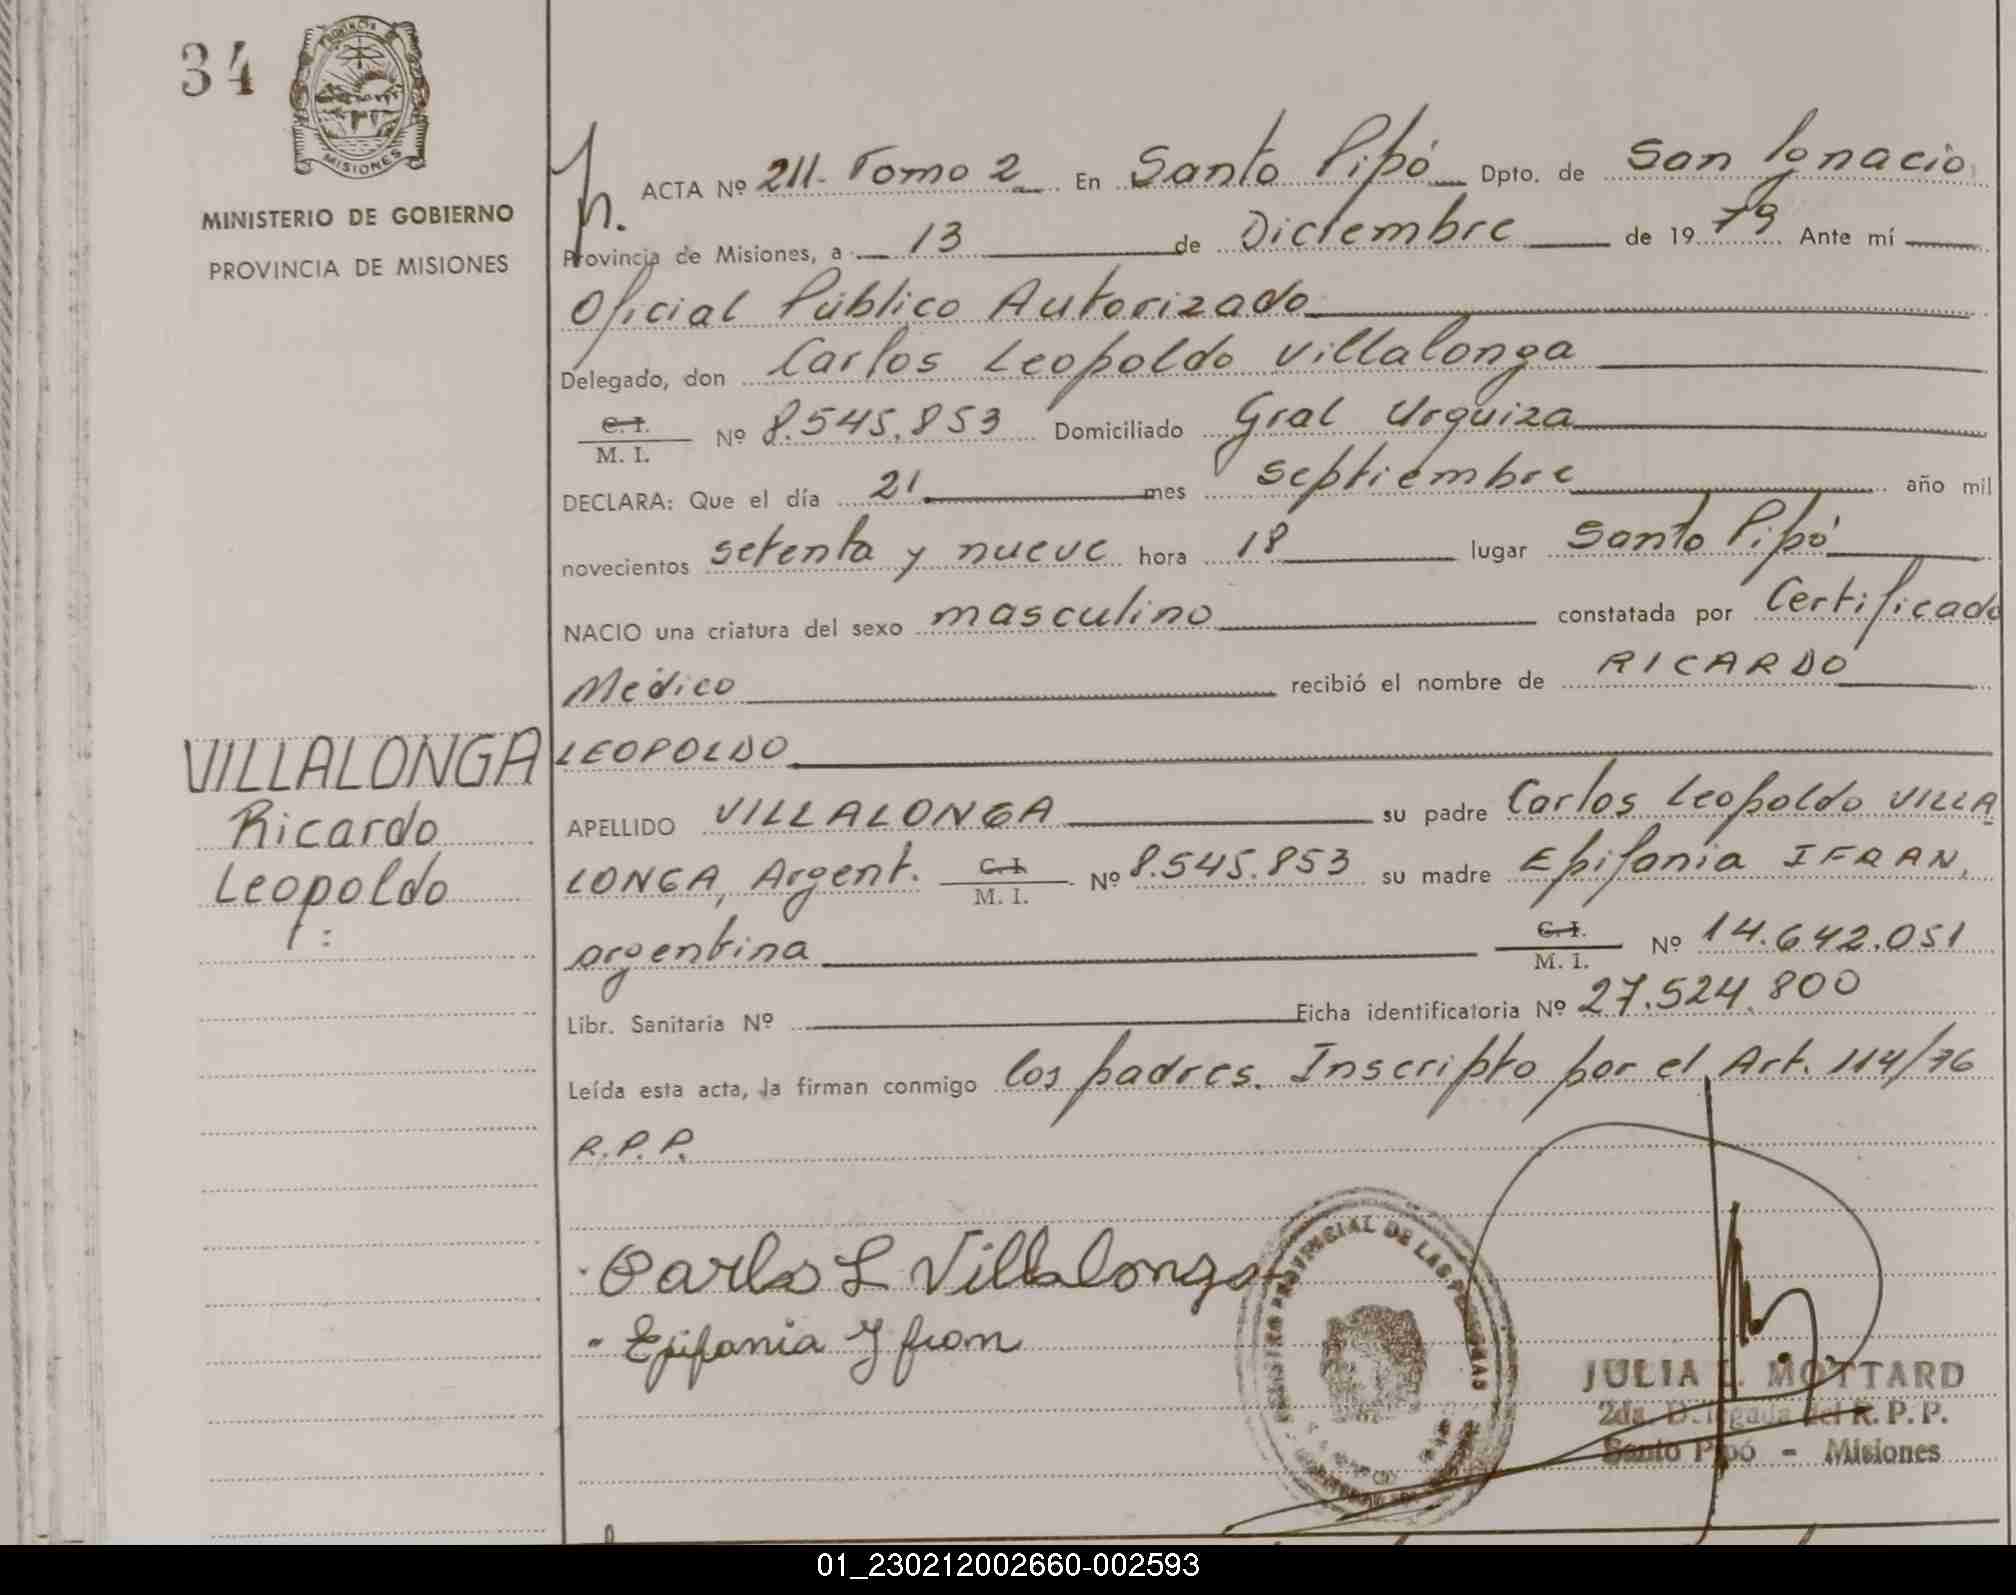 34
PROVINCIA
MISIONES
MINISTERIO DE GOBIERNO
PROVINCIA DE MISIONES
ACTA Nº 211. Tomo 2 En Santo Pipó Dpto. de San Ignacio
Provincia de Misiones, a 13 de Diciembre de 1979 Ante mí
Oficial Público Autorizado
Delegado, don Carlos Leopoldo Villalonga
C. I.
M. I. Nº 8.545.853 Domiciliado Gral Urquiza
DECLARA: Que el día 21 mes septiembre año mil
novecientos setenta y nueve hora 18 lugar Santo Pipó
NACIO una criatura del sexo masculino constatada por Certificado
Médico recibió el nombre de RICARDO
LEOPOLDO
VILLALONGA
Ricardo
Leopoldo
APELLIDO VILLALONGA su padre Carlos Leopoldo VILLA
LONGA, Argent. C. I.
M. I. Nº 8.545.853 su madre Epifania IFRAN,
argentina C. I.
M. I. Nº 14.642.051
Libr. Sanitaria Nº Ficha identificatoria Nº 27.524.800
Leída esta acta, la firman conmigo los padres. Inscripto por el Art. 114/76
R.P.P.
Carlos L Villalonga
Epifania Yfran
PROVINCIAL DE LAS PERSONAS
JULIA I. MOTTARD
2da. Delegada del R.P.P.
Santo Pipó - Misiones
01_230212002660-002593